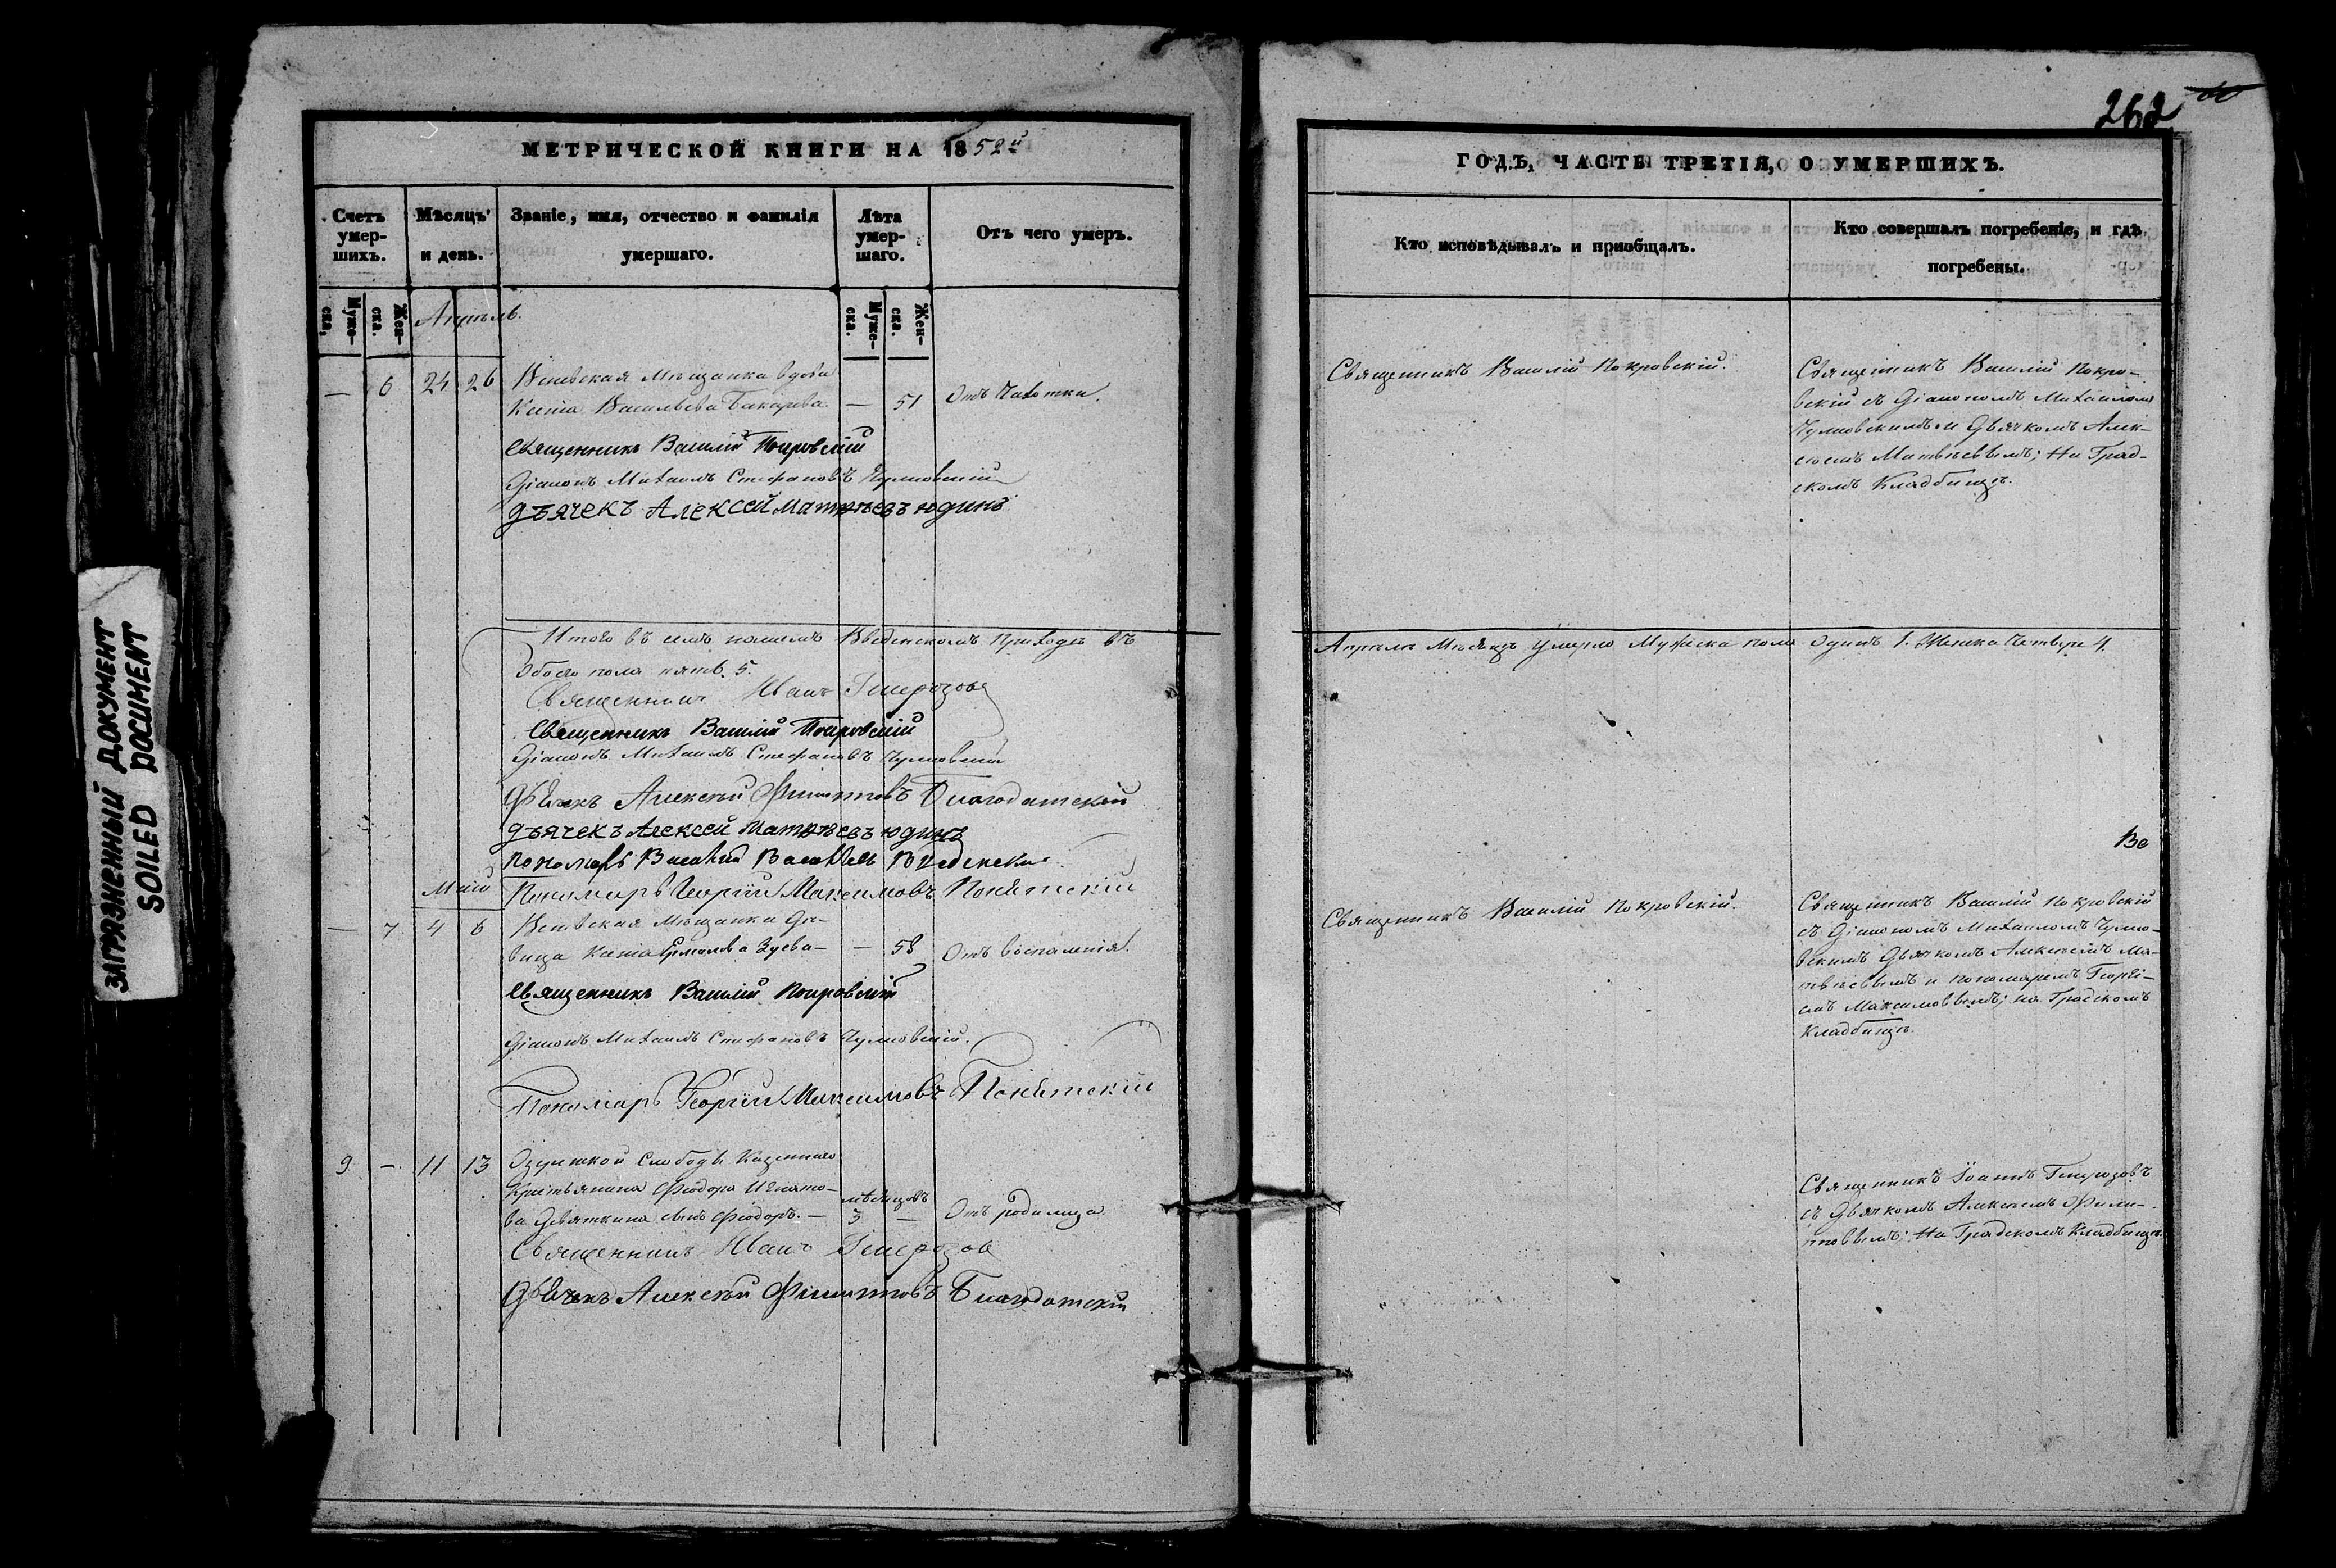 262
МЕТРИЧЕСКОЙ КНИГИ НА 1852й
Счетъ умер-шихъ.
Мѣсяцъ и день.
Званіе, имя, отчество и фамилія умершаго.
Лѣта умер-шаго.
Отъ чего умеръ.
Муже-ска,
Жен-ска.
Муже-ска.
Жен-ска.
Апрѣль.
— 6 24 26
мѣщанка вдова
Васильева — 51 Отъ Чахотки.
Священникъ Василій Покровскій
Діаконъ Михаилъ Стефановъ
дьячекъ Алексей Матвѣевъ Юдинъ
Итого въ семъ нашемъ Введенскомъ Приходѣ въ
Обоего пола пять. 5.
Священникъ Иванъ
Священникъ Василій Покровскій
Діаконъ Михаилъ Стефановъ
Дьячекъ Алексѣй Филипповъ Благодатскій
дьячекъ Алексей Матвѣевъ Юдинъ
пономарь Василій Васильевъ Введенскій
Май
Пономарь Георгій Максимовъ
— 7 4 6
мѣщанка дѣ-
вица Ермолова Зуева — — 58 Отъ воспаленія.
Священникъ Василій Покровскій
Діаконъ Михаилъ Стефановъ
Пономарь Георгій Максимовъ
9 — 11 13
Слободы Казеннаго
Крестьянина Феодора Игнато-
ва Девяткина сынъ Феодоръ. — мѣсяцовъ 3 — Отъ родимца
Священникъ Иванъ
Дьячекъ Алексѣй Филипповъ Благодатскій
ГОДЪ, ЧАСТЬ ТРЕТІЯ, О УМЕРШИХЪ.
Кто исповѣдывалъ и пріобщалъ.
Кто совершалъ погребеніе, и гдѣ погребены.
Священникъ Василій Покровскій.
Священникъ Василій Покро-
вскій съ Діакономъ Михаиломъ
и Дьячкомъ Алек-
сѣемъ Матвѣевымъ; На Град-
скомъ Кладбищѣ.
Апрѣлѣ Мѣсяцѣ умерло Мужеска пола одинъ 1. Женска Четыре 4.
Ве
Священникъ Василій Покровскій.
Священникъ Василій Покровскій
съ Діакономъ Михаиломъ
Дьячкомъ Алексѣемъ Ма-
твѣевымъ и пономаремъ Георгі-
емъ Максимовымъ; на Градскомъ
Кладбищѣ.
Священникъ Іоаннъ
съ Дьячкомъ Алексѣемъ Фили-
пповымъ; На Градскомъ Кладбищѣ.
ЗАГРЯЗНЕННЫЙ ДОКУМЕНТ
SOILED DOCUMENT